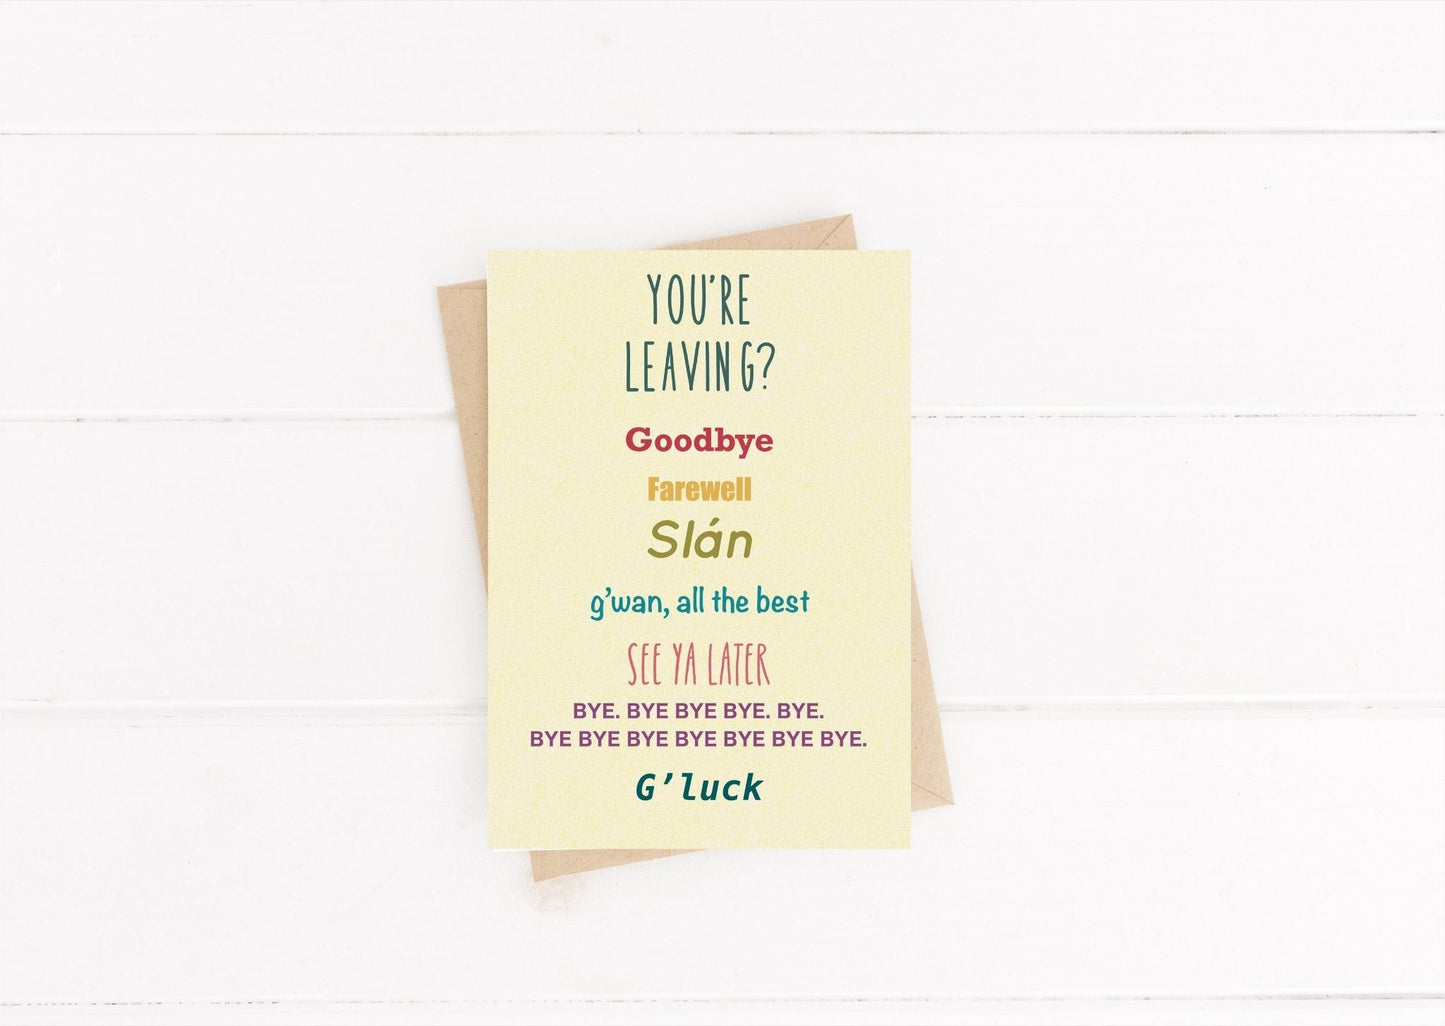 YOU'RE
LEAVING?
Goodbye
Farewell
Slán
g'wan, all the best
SEE YA LATER
BYE. BYE BYE BYE. BYE.
BYE BYE BYE BYE BYE BYE BYE.
G'luck